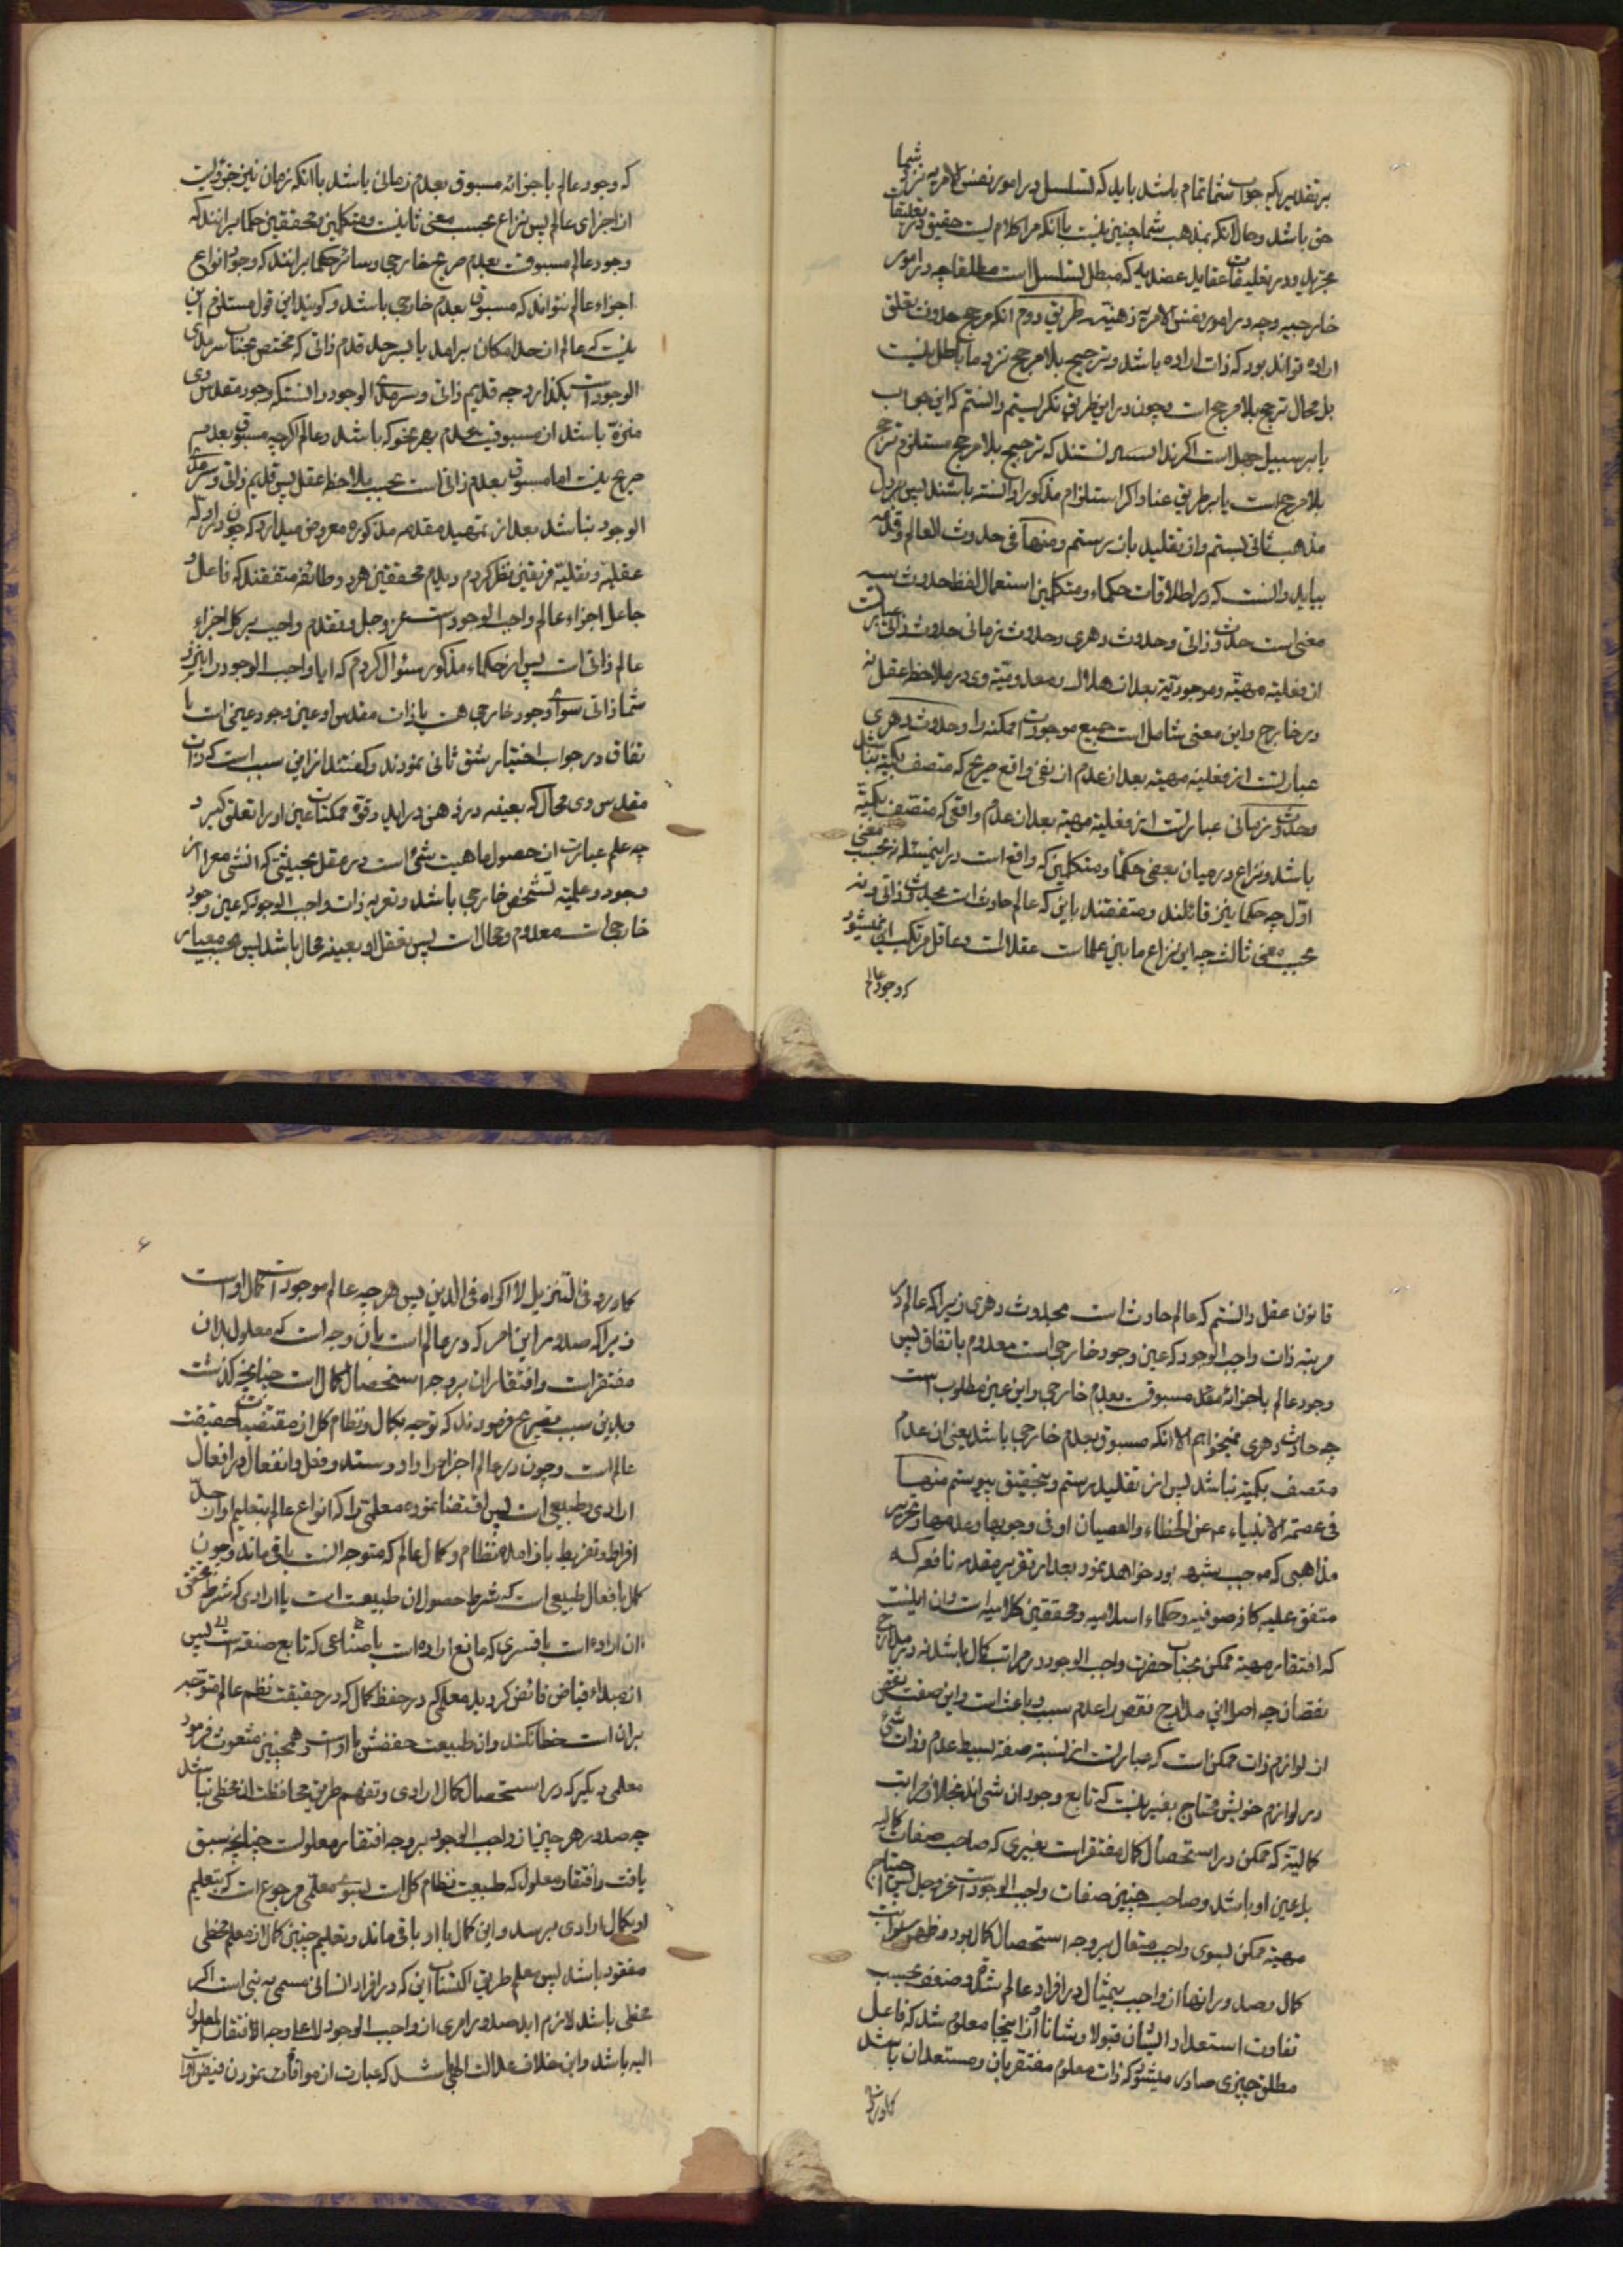 بر تقدیر یکه جواب شما تمام باشد باید که تسلسل در امور نفس الامریه نزد شما
حق باشد و حال آنکه مذهب شما چنین نیست با آنکه مرا کلامیست حقیق در تعلیقات
تجرید و در تعلیقات عقاید عضدیه که مبطل تسلسل است مطلقا چه در امور
خارجیه و چه در امور نفس الامریه ذهنیه طریق دوم آنکه مرجح حدوث تعلق
اراده تواند بود که ذات اراده باشد و ترجیح بلا مرجح نزد ما باطل نیست
بل محال ترجح بلا مرجح است و چون در این طریق نگریستیم دانستم که این جواب
یا بر سبیل جهل است اگر ندانسته‌اند که ترجیح بلا مرجح مستلزم ترجح
بلا مرجح است یا بر طریق عناد اگر استلزام مذکور را دانسته باشند پس بر دل
مذهب ثانی بستم و از تقلید بار رستم و منها فی حدوث العالم و قدمه
بباید دانست که در اطلاقات حکماء و متکلمین استعمال لفظ حدوث بسه
معنی است حدوث ذاتی و حدوث دهری و حدوث زمانی حدوث ذاتی عبارت
از فعلیه مهیّه و موجودیّة بعد از هلاک و معدومیّه وی در ملاحظه عقل نه
در خارج و این معنی شامل است جمیع موجودات ممکنه را و حدوث دهری
عبارتست از فعلیه مهیه بعد از عدم از نفی واقع صریح که متصف بکمیّه نباشد
و حدوث زمانی عبارتست از فعلیه مهیه بعد از عدم واقعی که متصف بکمیّه
باشد و نزاع در میان بعضی حکما و متکلمین که واقع است در این مسئله نه بحسب معنی
اوّل چه حکما نیز قائلند و متفقند باین که عالم حادث است بحدوث ذاتی و نه
بحسب معنی ثالث چه این نزاع ما بین علمات عقلا است و عاقل مرتکب این نمیشود
که وجود عالم
که وجود عالم باجزائه مسبوق بعدم زمانی باشد با آنکه زمان نیز جزویست
از اجزای عالم پس نزاع بحسب معنی ثانیست و متکلمین و محققین حکما برانند که
وجود عالم مسبوقست بعدم صرح خارجی و سائر حکما برانند که وجود انواع
اجزاء عالم نتواند که مسبوق بعدم خارجی باشد و گویند این قول مستلزم این
نیست که عالم از حد امکان برآمد یا بسر حد قدم ذاتی که مختص بجناب سرمدی
الوجود است بگذارد چه قدیم ذاتی و سرمدی الوجود دانست که وجود مقدس وی
منزه باشد از مسبوقیت بعدم بهر نحو که باشد و عالم اگرچه مسبوق بعدم
صریح نیست اما مسبوق بعدم ذاتی است بحسب ملاحظه عقل پس قدیم ذاتی و سرمدی
الوجود نباشد بعد از تمهید مقدمه مذکوره معروض میدارد که چون در ادله
عقلیه و نقلیه فریقین نظر کردم دیدم محققین هر دو طائفه متفقند که فاعل و
جاعل اجزاء عالم واجب الوجود است عز و جل و تقدم واجب بر کل اجزاء
عالم ذاتی است پس از حکماء مذکور سئوال کردم که ایا واجب الوجود را نزد
شما ذاتی سوای وجود خارجی هست یا ذات مقدس او عین وجود عینی است با
تفاق در جواب اختیار شق ثانی نمودند و گفتند از این سبب است که ذات
مقدس وی محال که بعینه در ذهن در آید و قوه ممکنات عین او را تعلق گیرد
چه علم عبارت از حصول ماهیت شی است در عقل بحیثیتی که آن شی معرا از
وجود و علمیة تشخص خارجی باشد و تعریه ذات واجب الوجود که عین وجود
خارجی است معدوم و محال است پس تعقل او بعینه محال باشد پس بحسب معیار
قانون عقل دانستم که عالم حادث است بحدوث دهری زیرا که عالم در
مرتبه ذات واجب الوجود که عین وجود خارجی است معدوم باتفاق پس
وجود عالم باجزائه مسبوق بعدم خارجی و این عین مطلوب است
چه حادث دهری نمیخواهیم الا آنکه مسبوق بعدم خارجی باشد یعنی آن عدم
متصف بکمیّه نباشد پس از تقلید رستم و بتحقیق پیوستم منها
فی عصمة الانبیاء عم عن الخطاء والعصیان او فی وجوبها و عدمها و تحریر
مذاهبی که موجب شبهه بود خواهد نمود بعد از تقریر مقدمه نافعه که
متفق علیه کافه صوفیه و حکماء اسلامیه و محققین کلامیه است و آن اینست
که افتقار مهیّه ممکن بجناب حضرت واجب الوجود در مراتب کمال باشد نه در مدارج
نقصان چه اصلا این مدارج نقص را عدم سبب و باعث است و این صفت نقص
از لوازم ذات ممکن است که عبارتست از نسبة صفة بسیط عدم و ذات شئ
در لوازم خویش محتاج بغیر نیست که تابع وجود آن شی اند بخلاف مراتب
کمالیّه که ممکن در استحصال کمال مفتقر است بغیری که صاحب صفات کمالیه
با عین او باشد و صاحب چنین صفات واجب الوجود است عز و جل پس احتیاج
مهیّه ممکن بسوی واجب متعال بر وجه استحصال کمال بود و ظهور مراتب
کمال و صدور انها از واجب بیمثال در افراد عالم شدة و ضعف بحسب
تفاوت استعداد ایشان قبولا و شانا از اینجا معلوم شد که فاعل
مطلق چیزی صادر میشود که ذات معلوم مفتقر بان و مستعد ان باشد
کما ورد
کما ورد فی التنزیل لا اکراه فی الدین پس هر چه عالم موجود است کمال او است
زیرا که صدور این امر که در عالم است بان وجه است که معلول بدان
مفتقر است و افتقار ان بر وجه استحصال کمال است چنانچه گذشت
و بدین سبب تصریح فرمودند که توجه بکمال و نظام کل از مقتضیات حقیقت
عالم است و چون در عالم اجزاء را داد و ستد و فعل و انفعال در افعال
ارادی و طبیعی است پس اقتضا نموده معلمی را که انواع عالم بتعلیم او از حدّ
افراط و تفریط باز آمده نظام و کمال عالم که متوجه انست باقی ماند و چون
کمل با فعال طبیعی است که شرط حصول ان طبیعت است یا ارادی که شرط تحقق
ان اراده است یا قسری که مانع اراده است یا صناعی که تابع صنعة است پس
از مبداء فیاض فائض گردید معلمی که در حفظ کمال که در حقیقت نظم عالم متوجه
بران است خطا نکند و ان طبیعت حفظش با او است و همچنین مبعوث فرمود
معلمی دیگر که در استحصال کمال ارادی و تفهم طریق محافظت ان مخطی نباشد
چه صدور هر چیز از واجب الوجود بر وجه افتقار معلول است چنانچه سبق
یافت و افتقار معلول که طبیعت نظام کل است بسوی معلمی مرجوع است که بتعلیم
او بکمال ارادی برسد و این کمال با او باقی ماند و تعلیم چنین کمال از معلم مخطی
مفقود باشد پس معلم طریق اکتساب این که در افراد انسانی مسمی به نبی است اگر
مخطی باشد لازم اید صدور امری از واجب الوجود لا علی وجه الافتقار المعلول
الیه باشد و این خلاف عدالت الهی باشد که عبارت از موافات نمودن فیض او است